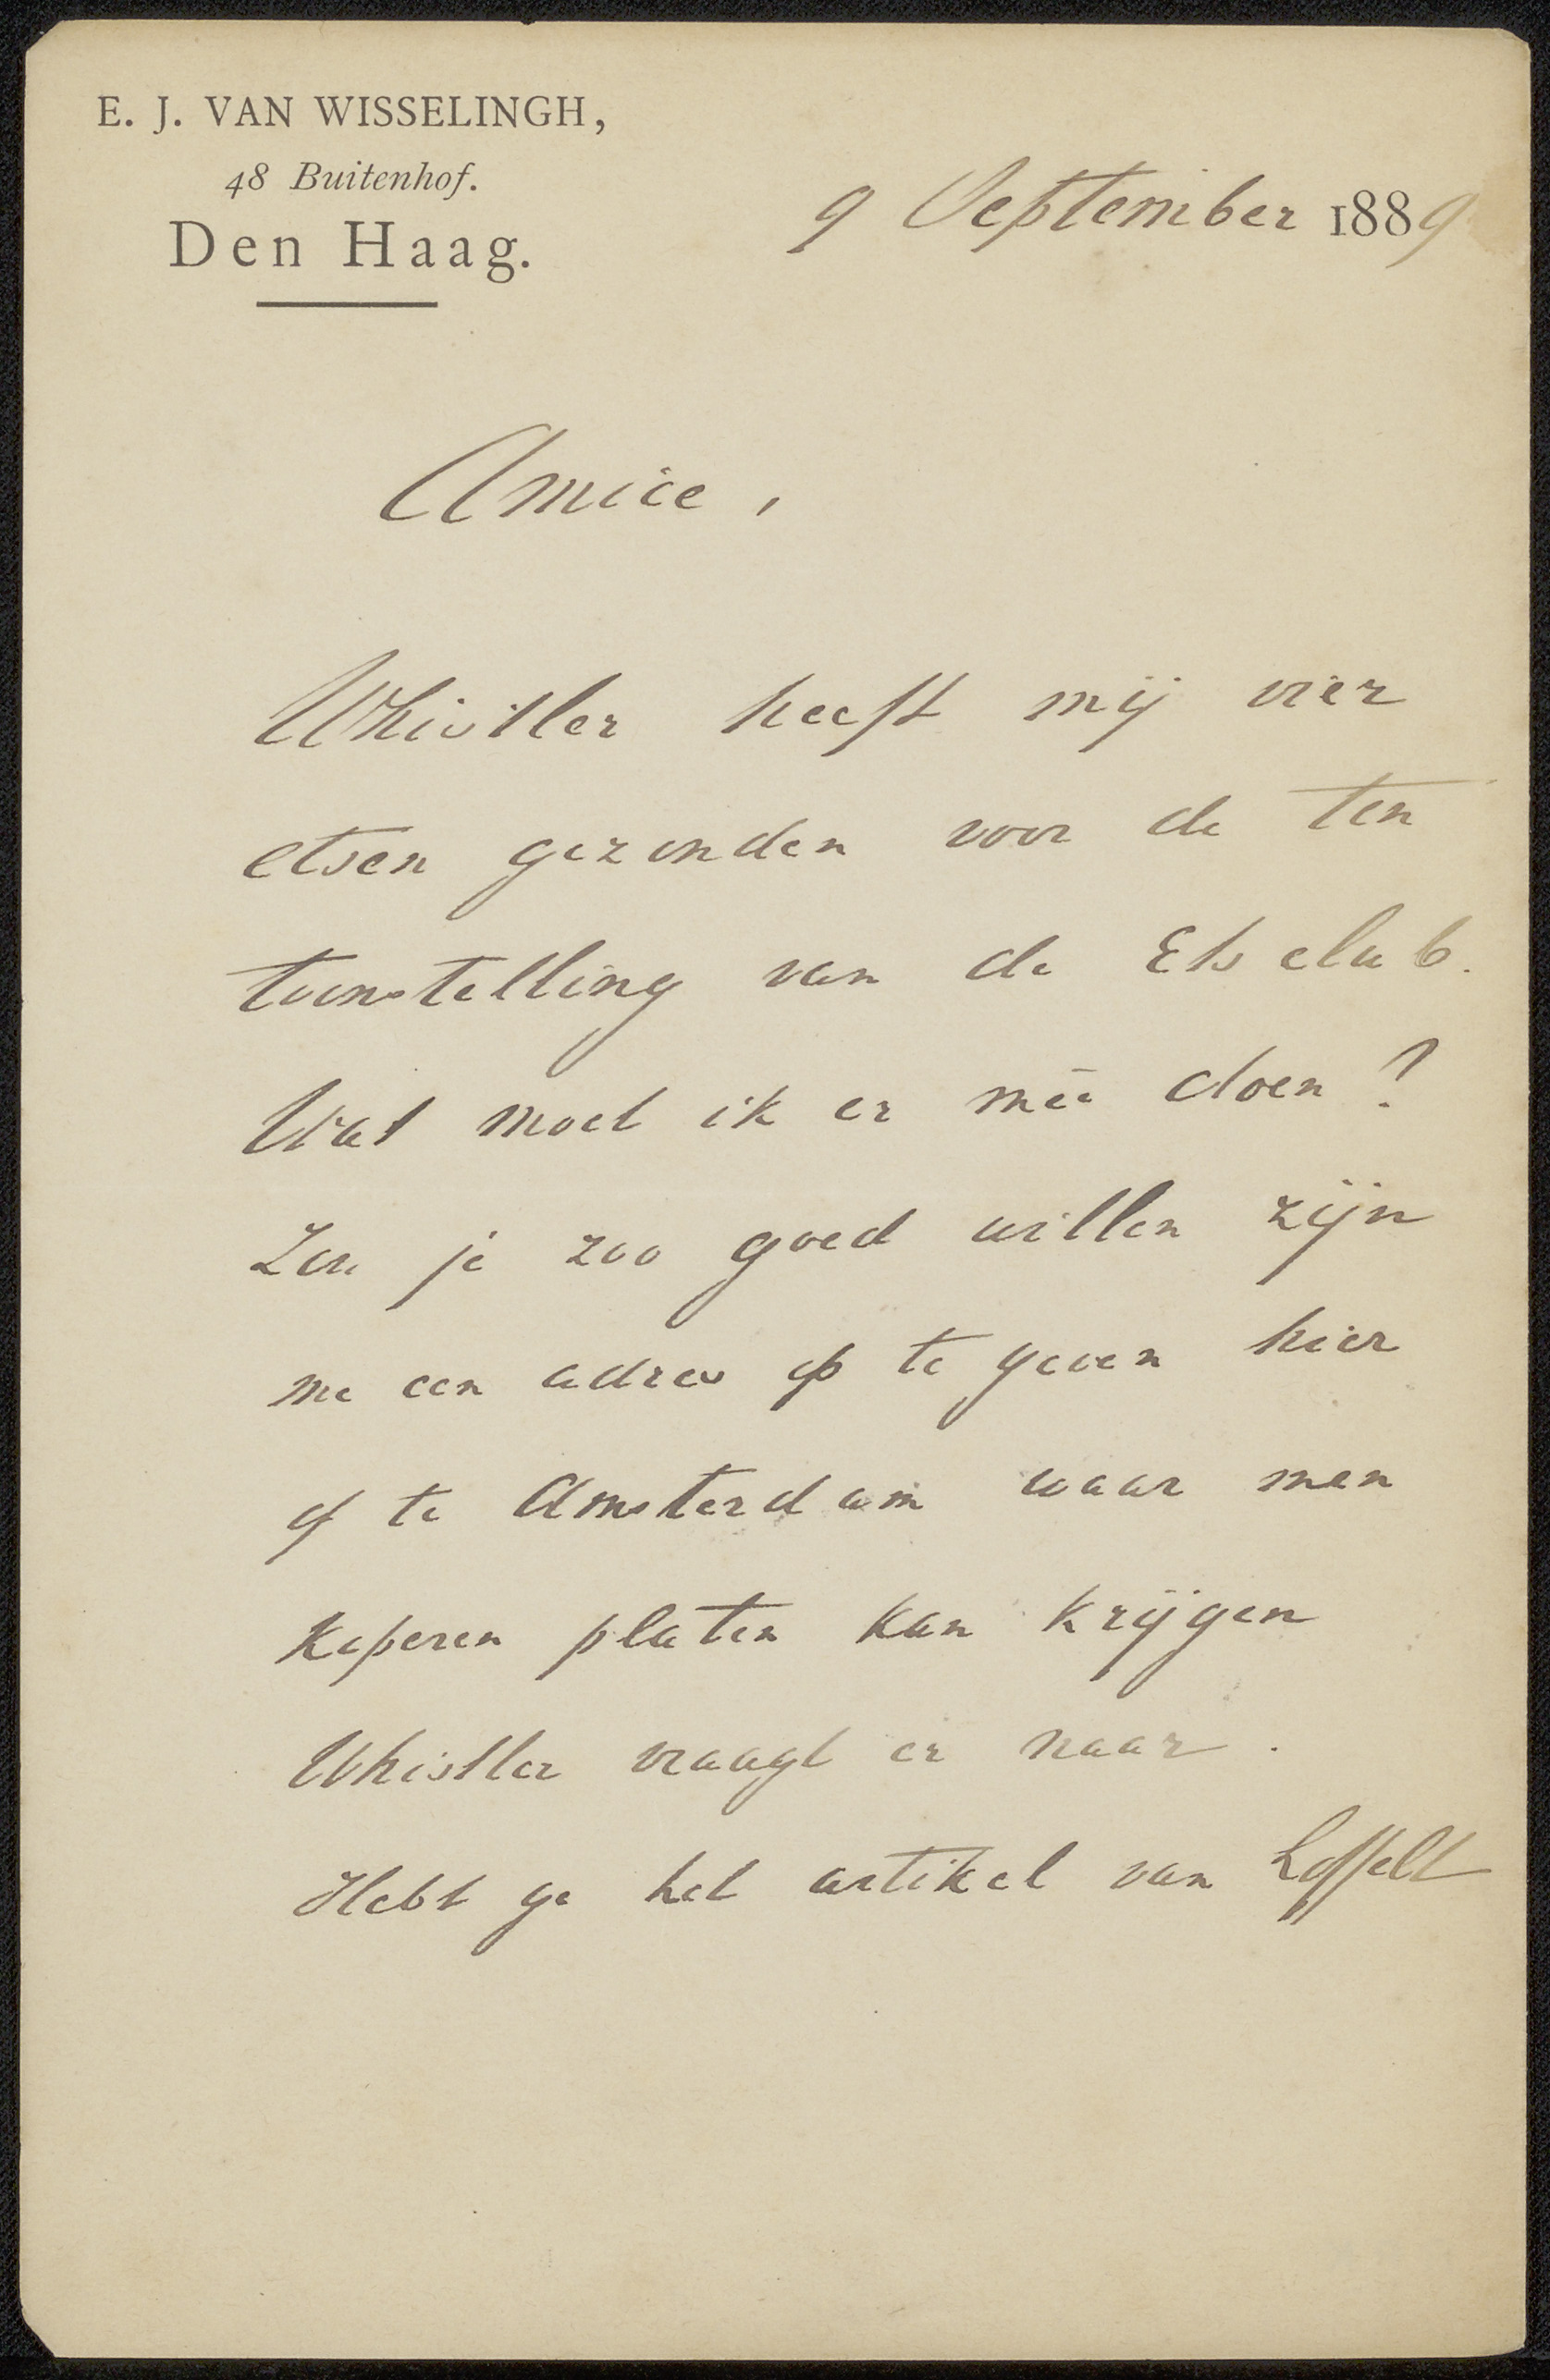 E. J. VAN WISSELINGH,
48 Buitenhof.
Den Haag.
9 September 1889
Amice,
Whistler heeft mij vier
etsen gezonden voor de ten
toonstelling van de Ets club.
Wat moet ik er mêe doen?
Zou je zoo goed willen zijn
me een adres op te geven hier
of te Amsterdam waar men
koperen platen kan krijgen
Whistler vraagt er naar.
Hebt ge het artikel van Loffelt